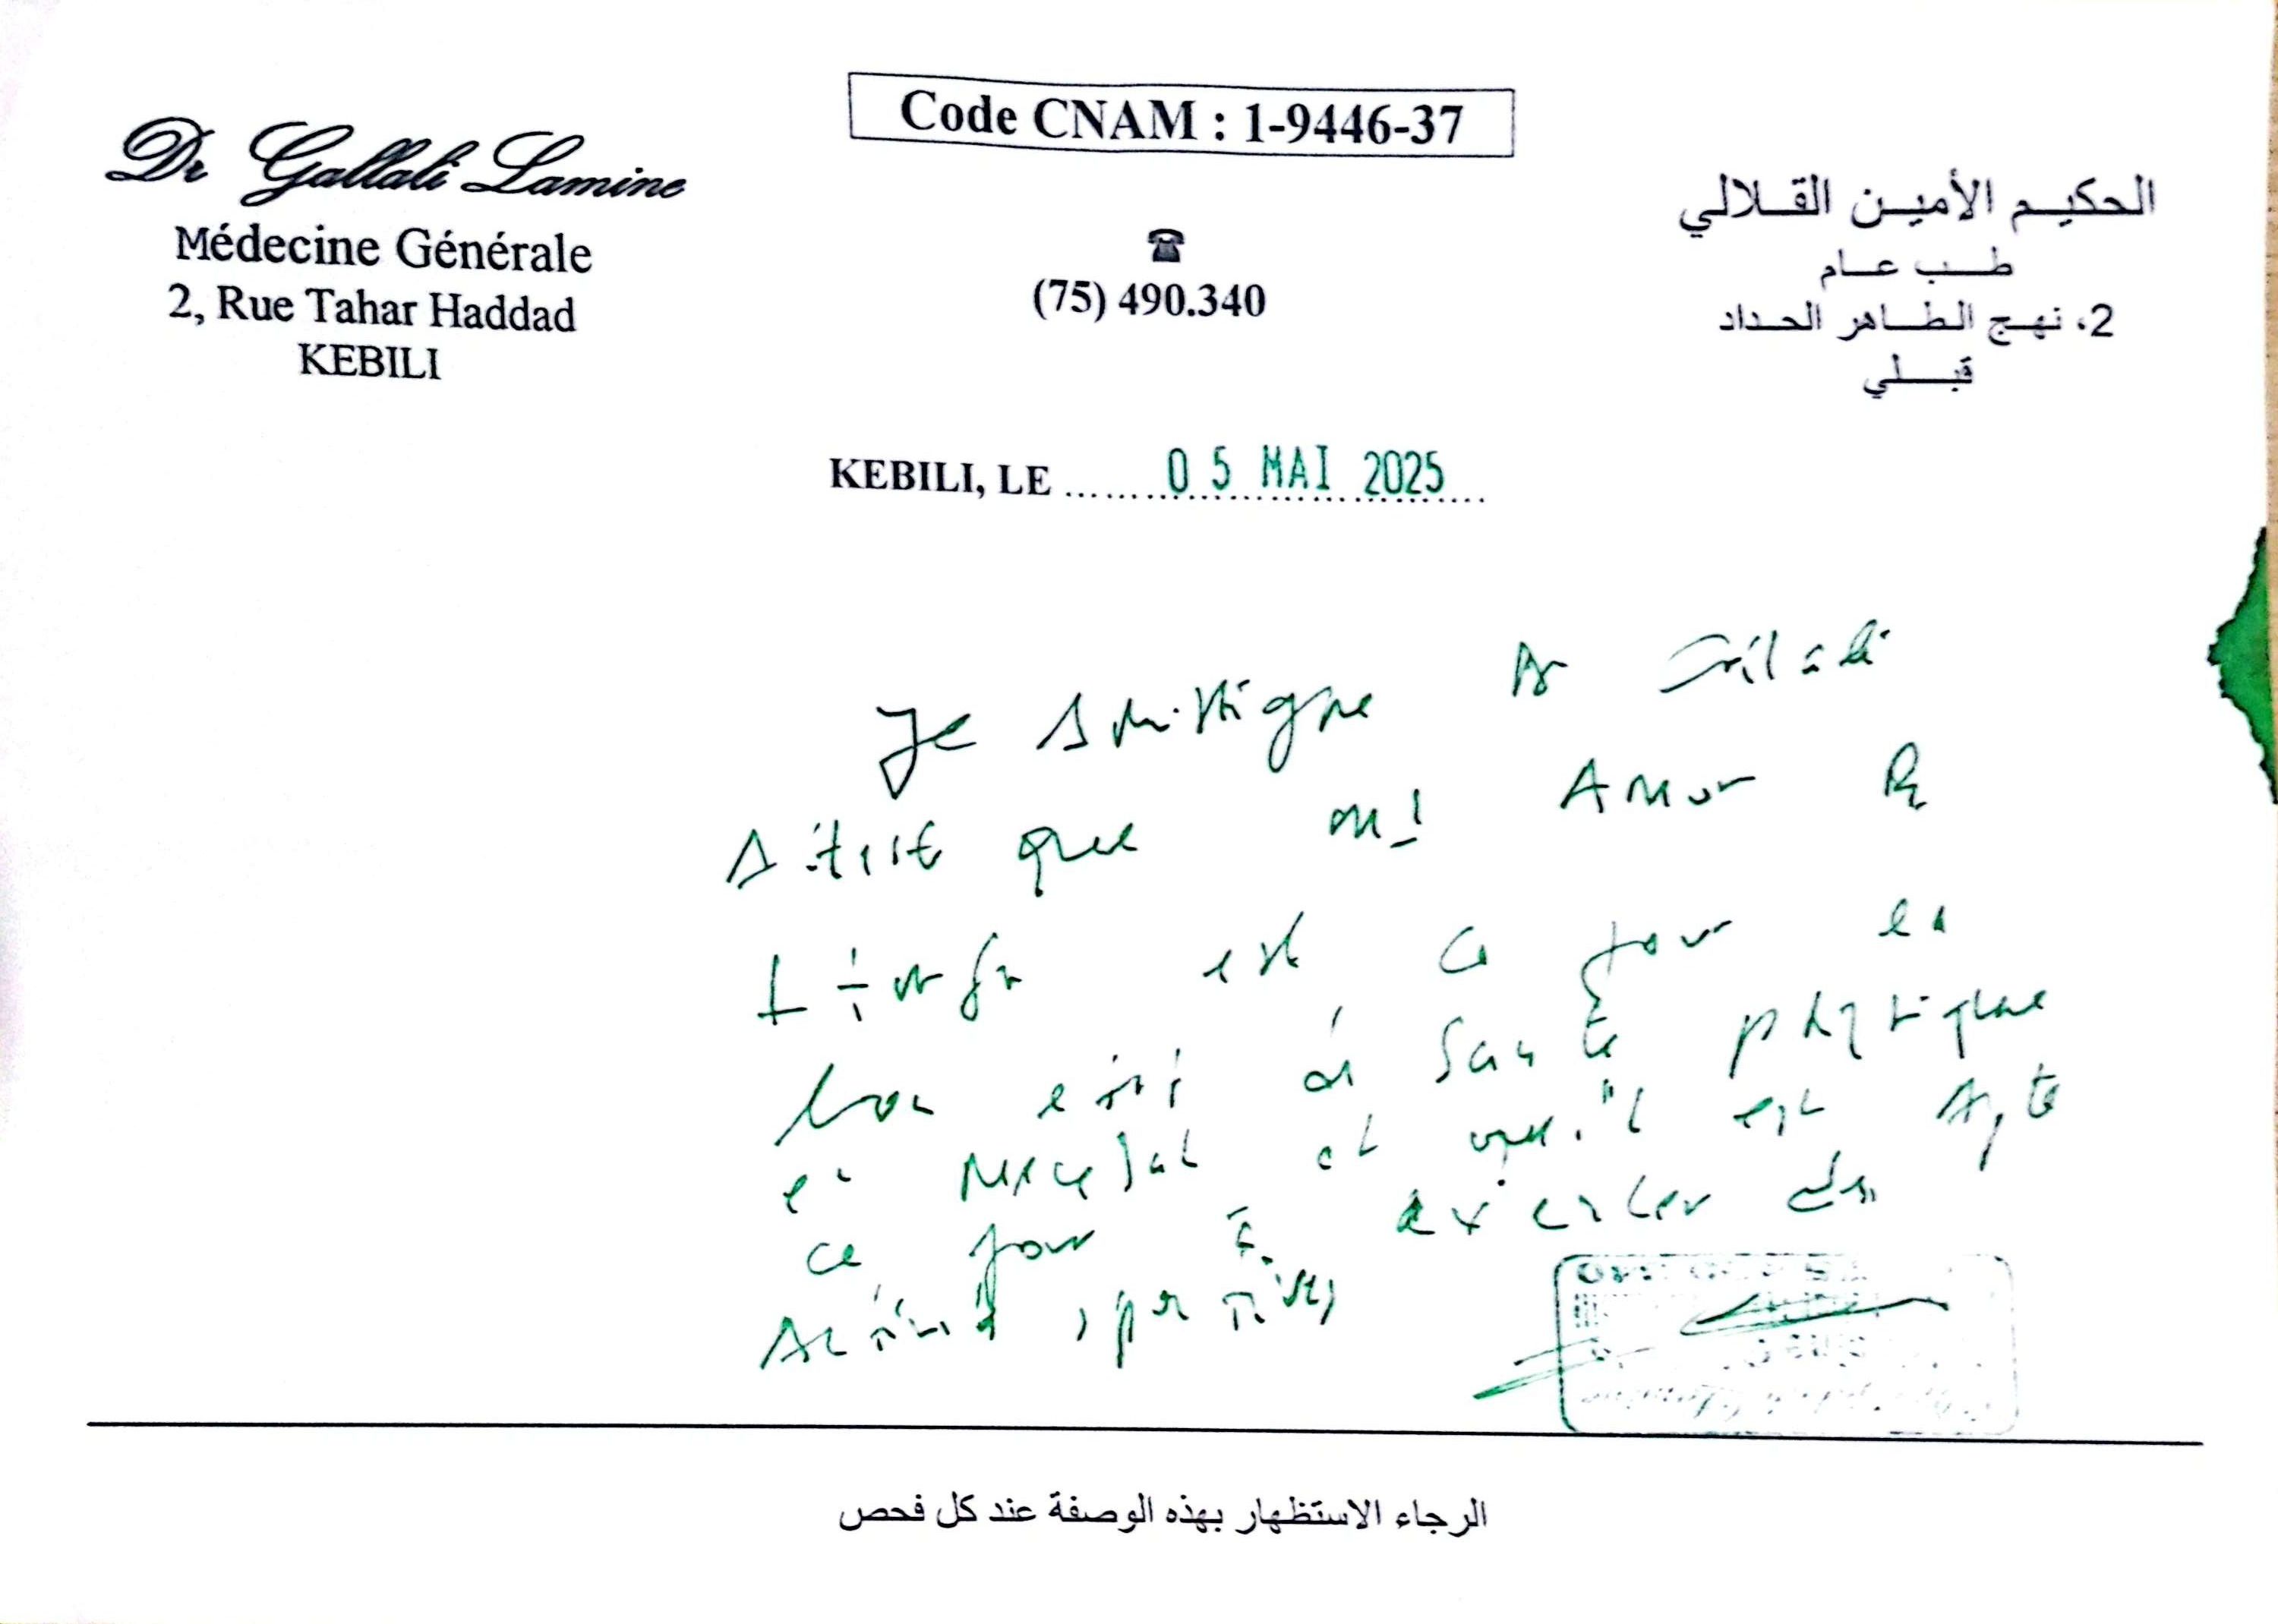 Code CNAM : 1-9446-37
Dr Gallali Lamine
Médecine Générale
2, Rue Tahar Haddad
KEBILI
(75) 490.340
الحكيم الأمين القلالي
طب عام
2، نهج الطاهر الحداد
قبلي
KEBILI, LE 05 MAI 2025
Je soussigne Dr
que Amor
est ce jour en
bon état de santé physique
et qu'il est Apte
ce jour à exercer des
activités sportives
الرجاء الاستظهار بهذه الوصفة عند كل فحص